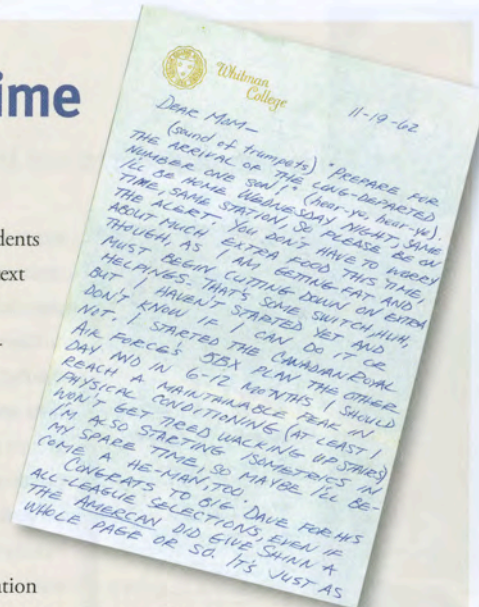 ime
dents
ext
ution
Whitman
College
11-19-62
DEAR MOM—
(sound of trumpets) "PREPARE FOR
THE ARRIVAL OF THE LONG-DEPARTED
NUMBER ONE SON!" (hear-ye, hear-ye).
I'LL BE HOME WEDNESDAY NIGHT, SAME
TIME, SAME STATION, SO PLEASE BE ON
THE ALERT. YOU DON'T HAVE TO WORRY
ABOUT MUCH EXTRA FOOD THIS TIME
THOUGH, AS I AM GETTING FAT AND
MUST BEGIN CUTTING DOWN ON EXTRA
HELPINGS. THAT'S SOME SWITCH, HUH,
BUT I HAVEN'T STARTED YET AND
DON'T KNOW IF I CAN DO IT OR
NOT. I STARTED THE CANADIAN ROYAL
AIR FORCE'S 5BX PLAN THE OTHER
DAY AND IN 6-12 MONTHS I SHOULD
REACH A MAINTAINABLE PEAK IN
PHYSICAL CONDITIONING (AT LEAST I
WON'T GET TIRED WALKING UPSTAIRS)
I'M ALSO STARTING ISOMETRICS IN
MY SPARE TIME, SO MAYBE I'LL BE-
COME A HE-MAN, TOO.
CONGRATS TO BIG DAVE FOR HIS
ALL-LEAGUE SELECTIONS, EVEN IF
THE AMERICAN DID GIVE SHINN A
WHOLE PAGE OR SO. IT'S JUST AS